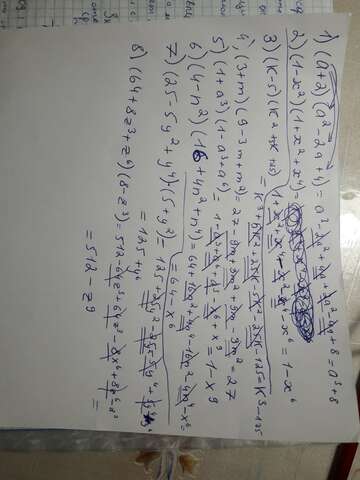 1) (a+2)(a²-2a+4)=a³-2a²+4a+2a²-4a+8=a³+8
2) (1-x²)(1+x²+x⁴)=
1+x²+x⁴-x²-x⁴-x⁶=1-x⁶
3) (K-5)(K²+5K+25)=K³+5K²+25K-5K²-25K-125=K³-125
4) (3+m)(9-3m+m²)=27-9m+3m²+9m-3m²=27
5) (1+a³)(1-a³+a⁶)=1-a³+a⁶+a³-x⁶+x⁹=1-x⁹
6) (4-n²)(16+4n²+n⁴)=64+16n²+4n⁴-16n²-4n⁴-x⁶=
=64-x⁶
7) (25-5y²+y⁴)·(5+y²)=125
=125+y⁶
8) (64+8z³+z⁶)(8-z³)=512-64z³+64z³-8z⁶+8z⁶-z⁹=
=512-z⁹